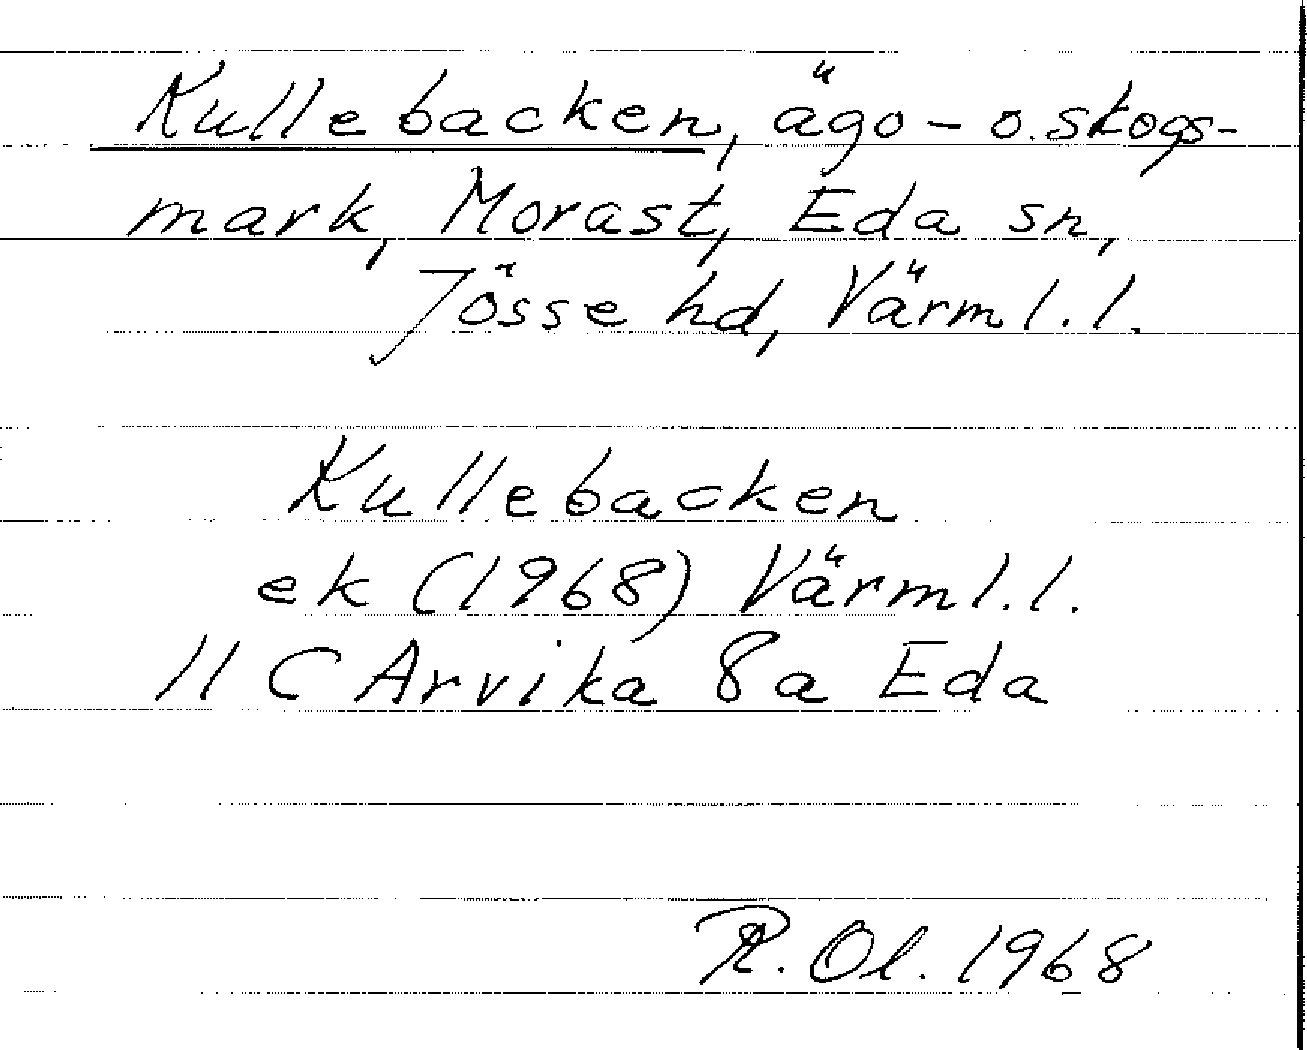 Kullebacken, ägo- o. skogs-
mark, Morast, Eda sn,
Jösse hd, Värml. l.
Kullebacken
ek (1968) Värml. l.
11 C Arvika 8a Eda
R. Ol. 1968